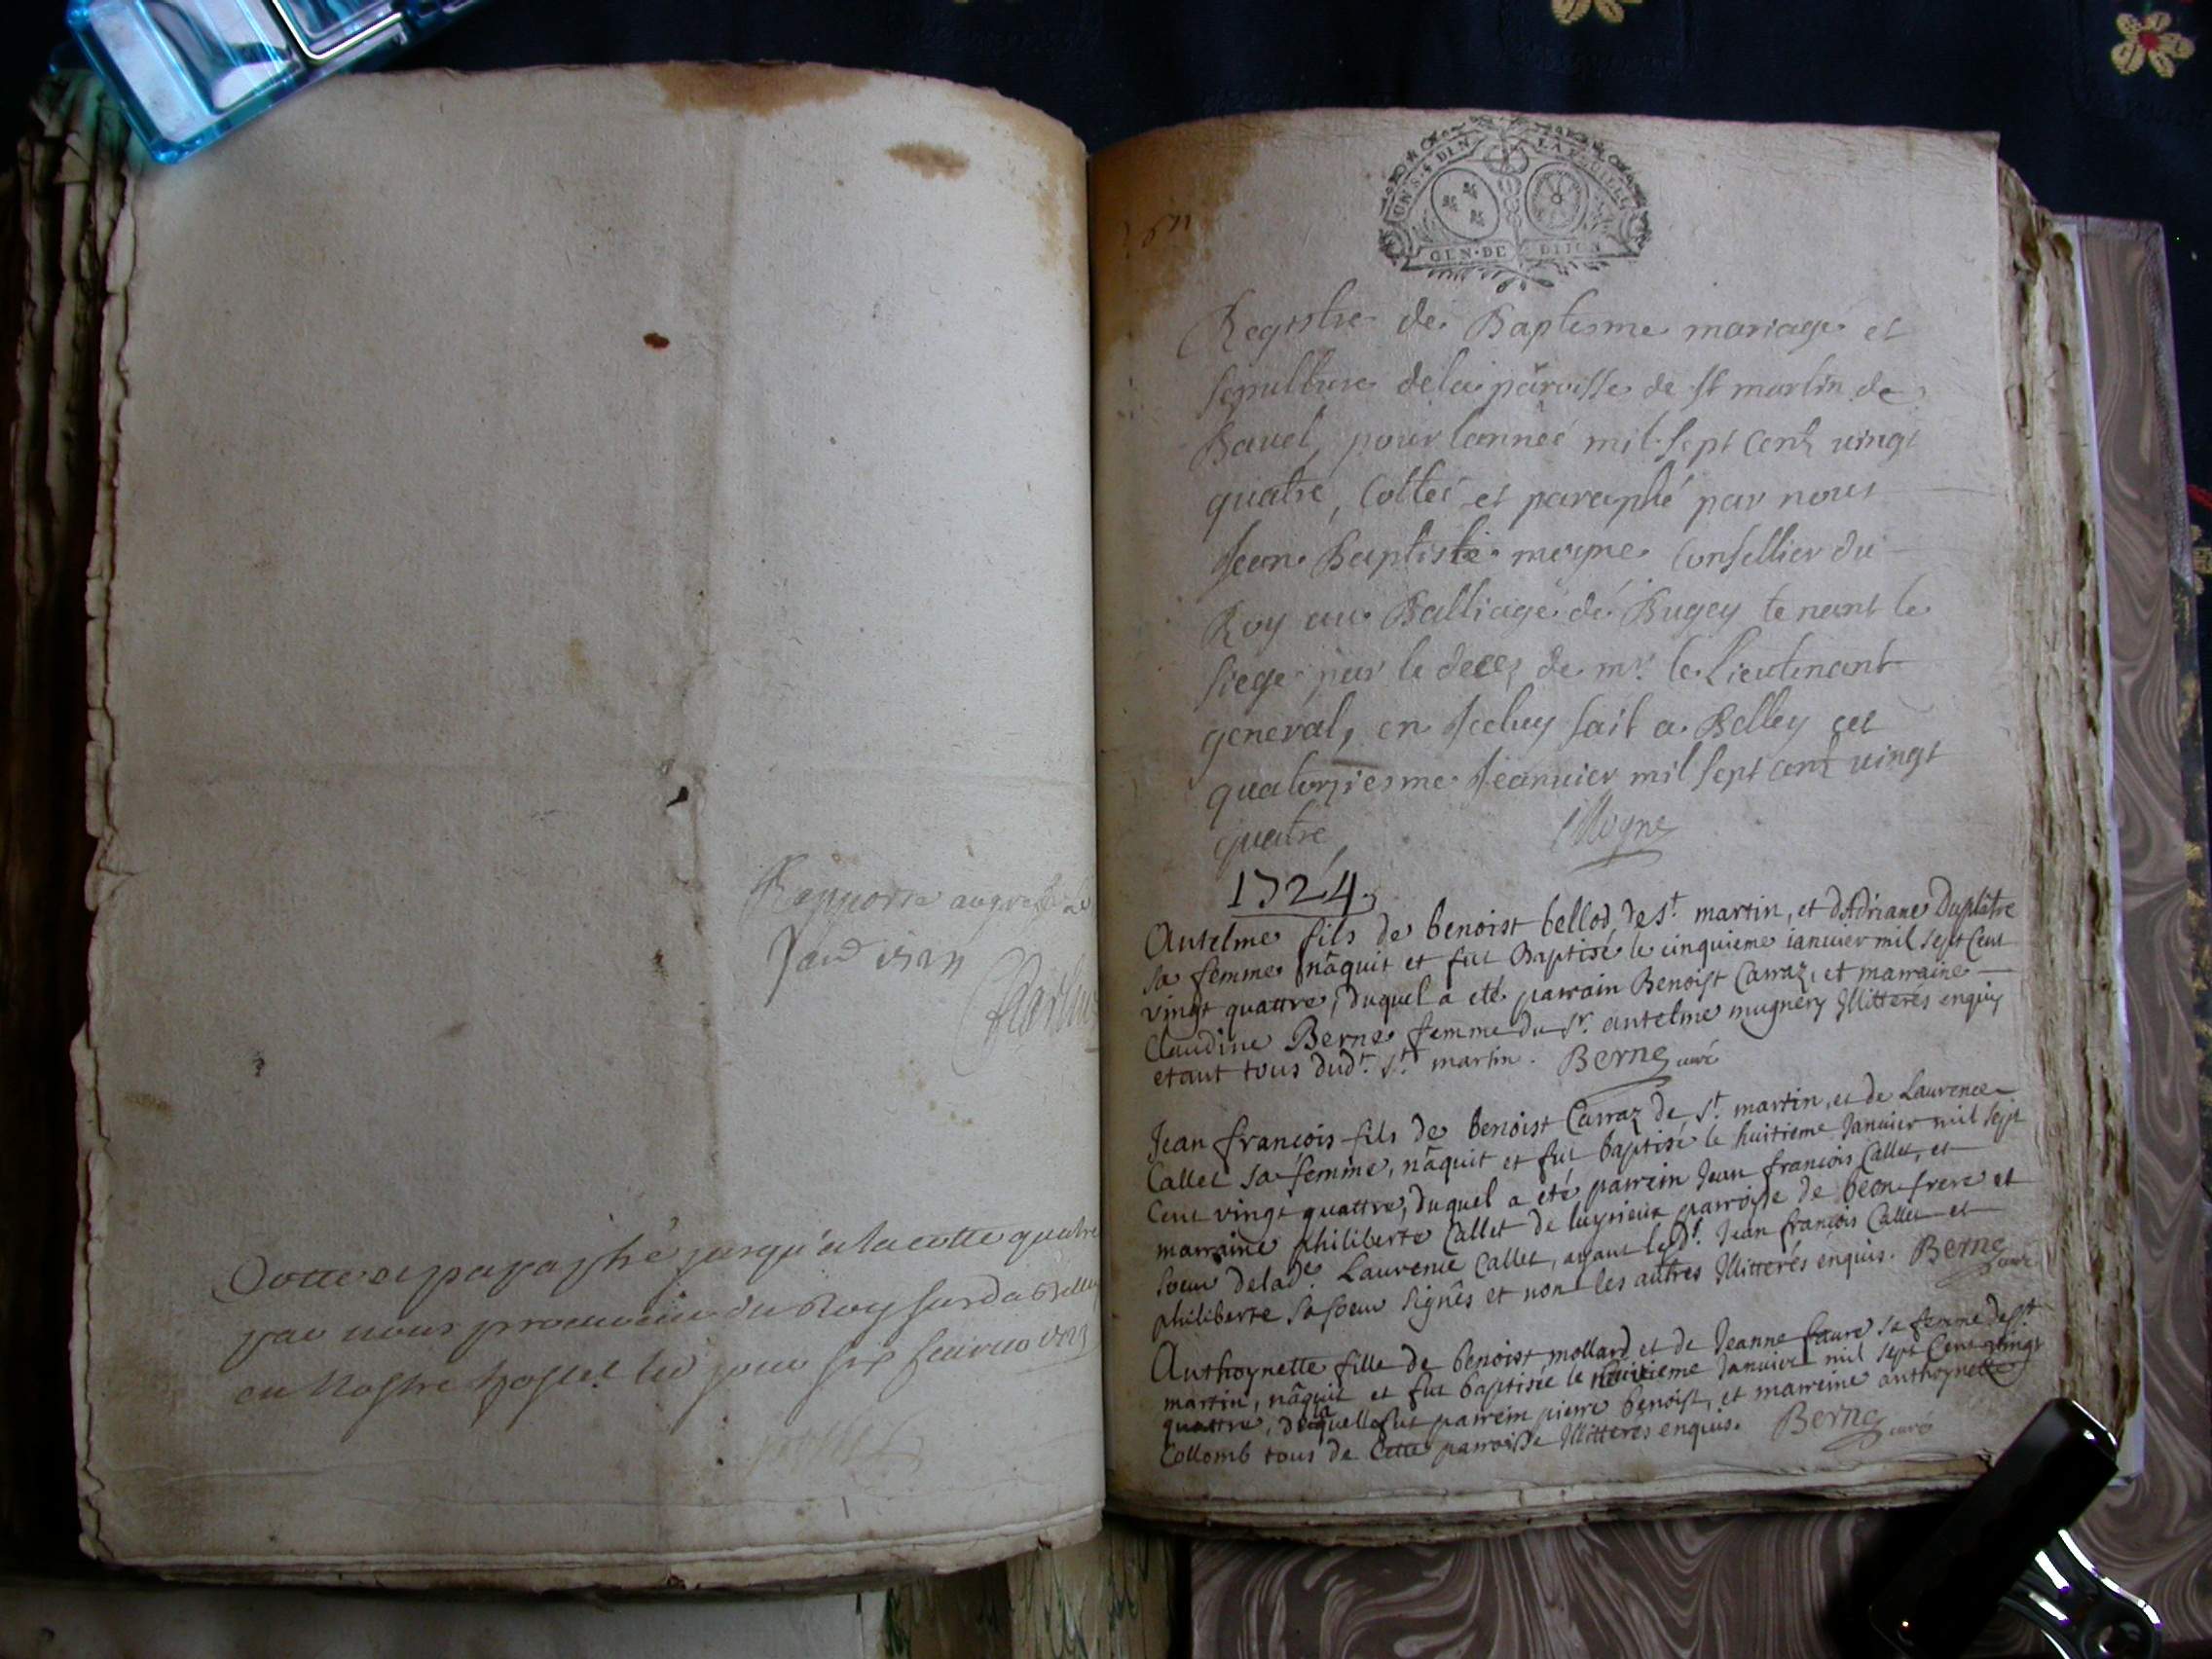 au greffe le
Cotté et paraphé jusqu'a la cotte quatre
par nous procureur du Roy
en Nostre hostel le jour six
UN S. 4 DEN LA FEUILLE
GEN. DE DIJON
Registre de Baptesme mariage et
sepulture de la paroisse de st martin de
Bavel, pour lannée mil sept cent vingt
quatre, Cottée et paraphé par nous
Jean Baptiste moyne Consellier du
Roy au Balliage de Bugey tenant le
siege par le decez de mr. le Lieutenant
general, en Iceluy fait a Belley cet
quatorziesme Jeanvier mil sept cent vingt
quatre Moyne
1724.
Antelme fils de benoist bellod de st. martin, et dAdriane Duplâtre
sa femme nâquit et fut Baptisé le cinquieme ianvier mil sept Cent
vingt quattre, duquel a eté parrain Benoist Carraz, et marraine
Claudine Berne femme du sr. antelme mugnery Illitterés enquis
etant tous dudt. st. martin. Berne curé
Jean françois fils de benoist Carraz de st. martin, et de Laurence
Callet sa femme, nâquit et fut baptisé le huitieme Janvier mil sept
Cent vingt quattre, duquel a eté parrein Jean françois Callet, et
marraine philiberte Callet de luyrieux parroisse de beon frere et
soeur delade. Laurence Callet, ayant ledt. Jean françois Callet et
philiberte sa soeur signés et non les autres Illitterés enquis. Berne curé
Anthoynette fille de benoist mollard et de Jeanne faure sa femme de st.
martin, nâquit et fut baptisée le Janvier mil sept Cent vingt
quattre, de laquelle fut parrein pierre benoist, et marreine anthoynette
Collomb tous de Cette parroisse Illitterés enquis. Berne curé